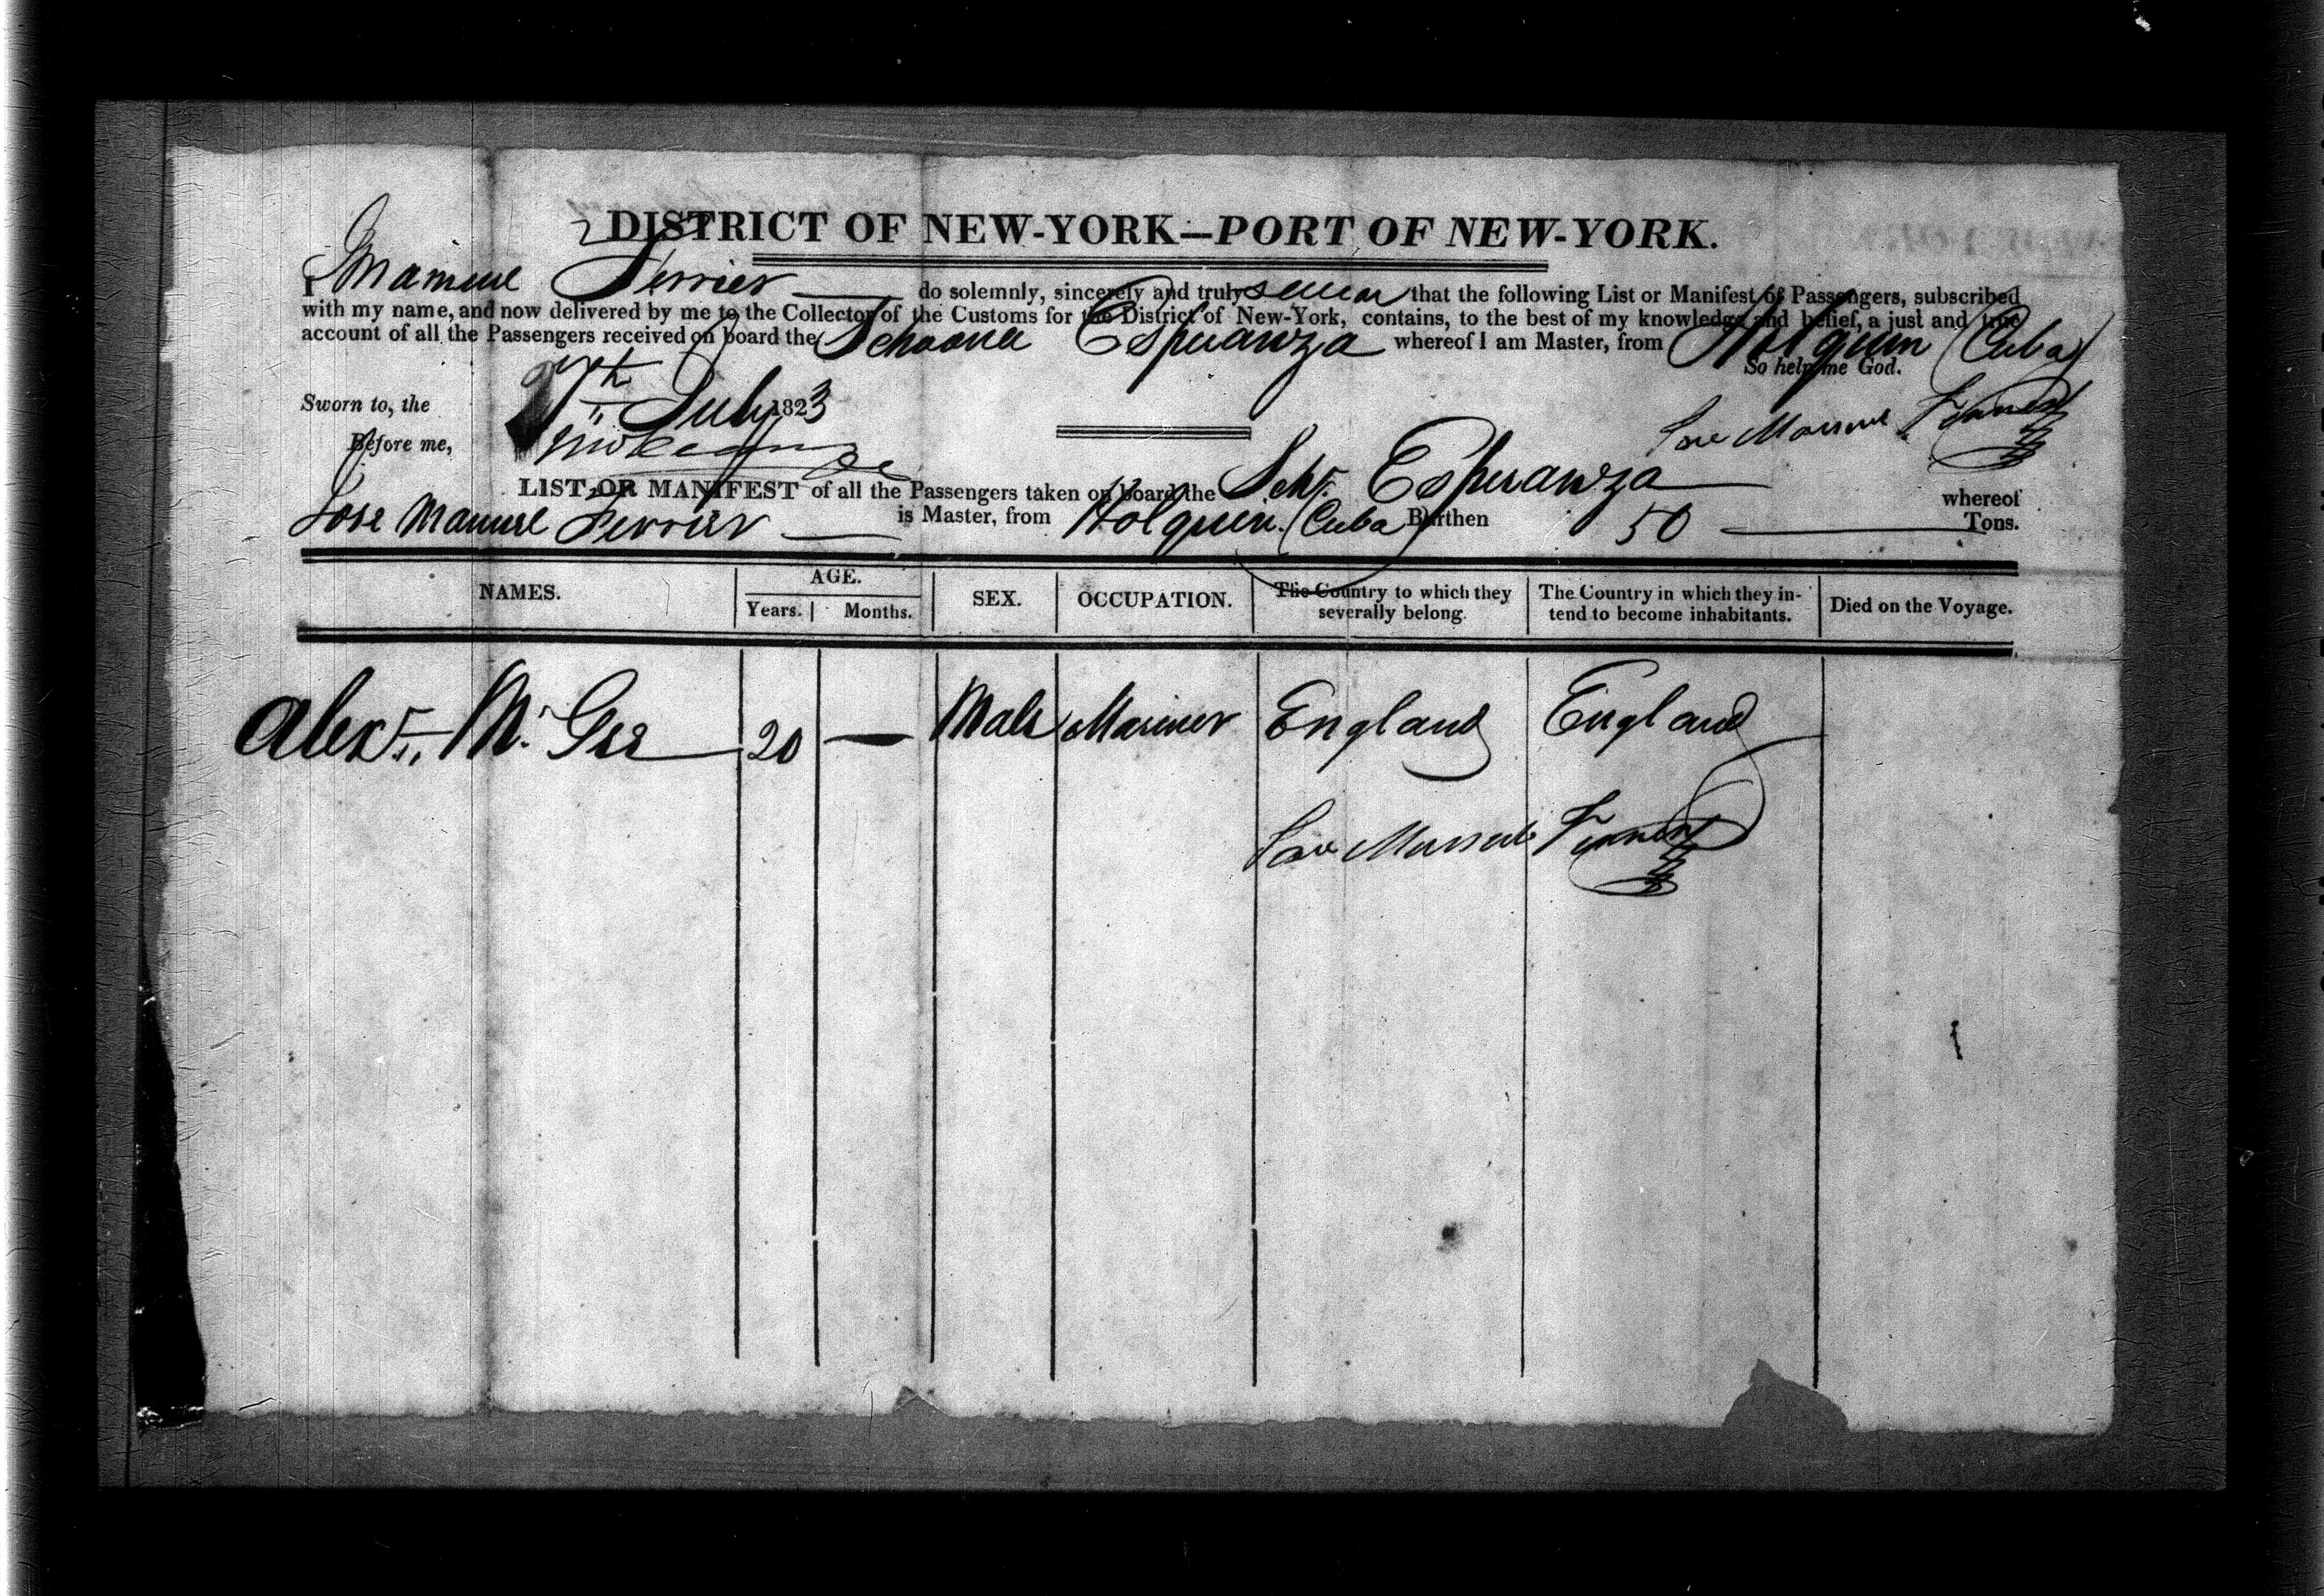 DISTRICT OF NEW-YORK—PORT OF NEW-YORK.
I Manuel Ferrier do solemnly, sincerely and truly swear that the following List or Manifest of Passengers, subscribed
with my name, and now delivered by me to the Collector of the Customs for the District of New-York, contains, to the best of my knowledge and belief, a just and true
account of all the Passengers received on board the Schooner Esperanza whereof I am Master, from Holguin (Cuba)
So help me God.
Sworn to, the July 1823
Jose Manuel
Before me,
LIST OR MANIFEST of all the Passengers taken on board the Schr. Esperanza whereof
Jose Manuel Ferrier is Master, from Holguin (Cuba) Burthen 50 Tons.
NAMES. AGE. SEX. OCCUPATION. The Country to which they severally belong. The Country in which they in-tend to become inhabitants. Died on the Voyage.
Years. Months.
Alexr. Mc. Gee 20 — Male Mariner England England
Jose Manuel